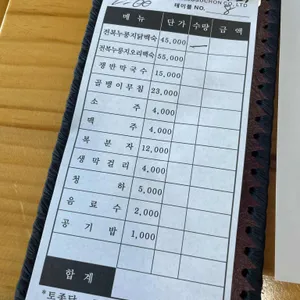 CO.,LTD
테이블 NO. 8
메 뉴 단 가 수량 금 액
전복누룽지닭백숙 45,000 —
전복누룽지오리백숙 55,000
쟁반막국수 15,000
골뱅이무침 23,000
소 주 4,000
맥 주 4,000
복 분 자 12,000
생막걸리 4,000
청 하 5,000
음 료 수 2,000
공 기 밥 1,000
합 계
*토종닭